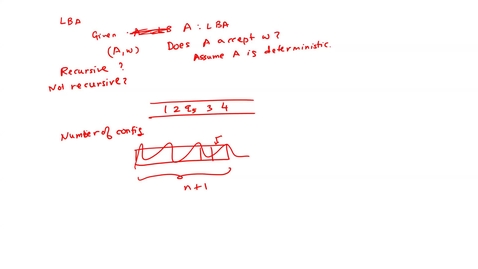 LBA
Given A : LBA
(A, w) Does A accept w?
Assume A is deterministic.
Recursive ?
Not recursive?
1 2 q5 3 4
Number of config
n+1